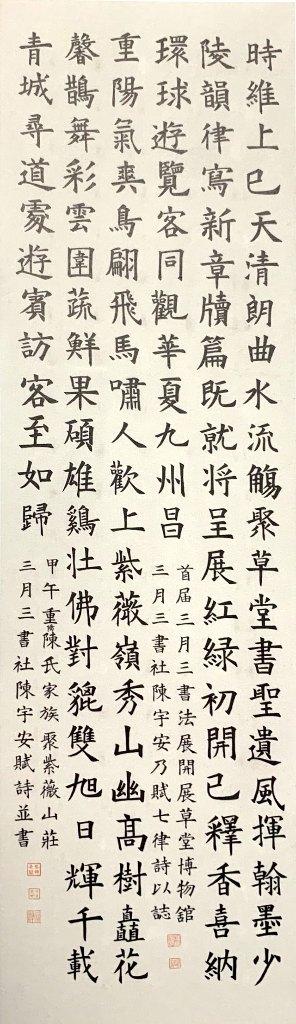 時維上巳天清朗曲水流觴聚草堂書聖遺風揮翰墨少
陵韻律寫新章牘篇既就将呈展紅綠初開已釋香喜納
環球遊覽客同觀華夏九州昌
首届三月三書法展開展草堂博物館
三月三書社陳宇安乃賦七律詩以誌
重陽氣爽鳥翩飛馬嘯人歡上紫薇嶺秀山幽高樹矗花
馨鵲舞彩雲圍蔬鮮果碩雄鷄壯佛對貔雙旭日輝千載
青城尋道處遊賓訪客至如歸
甲午重陽陳氏家族聚紫薇山莊
三月三書社陳宇安賦詩並書